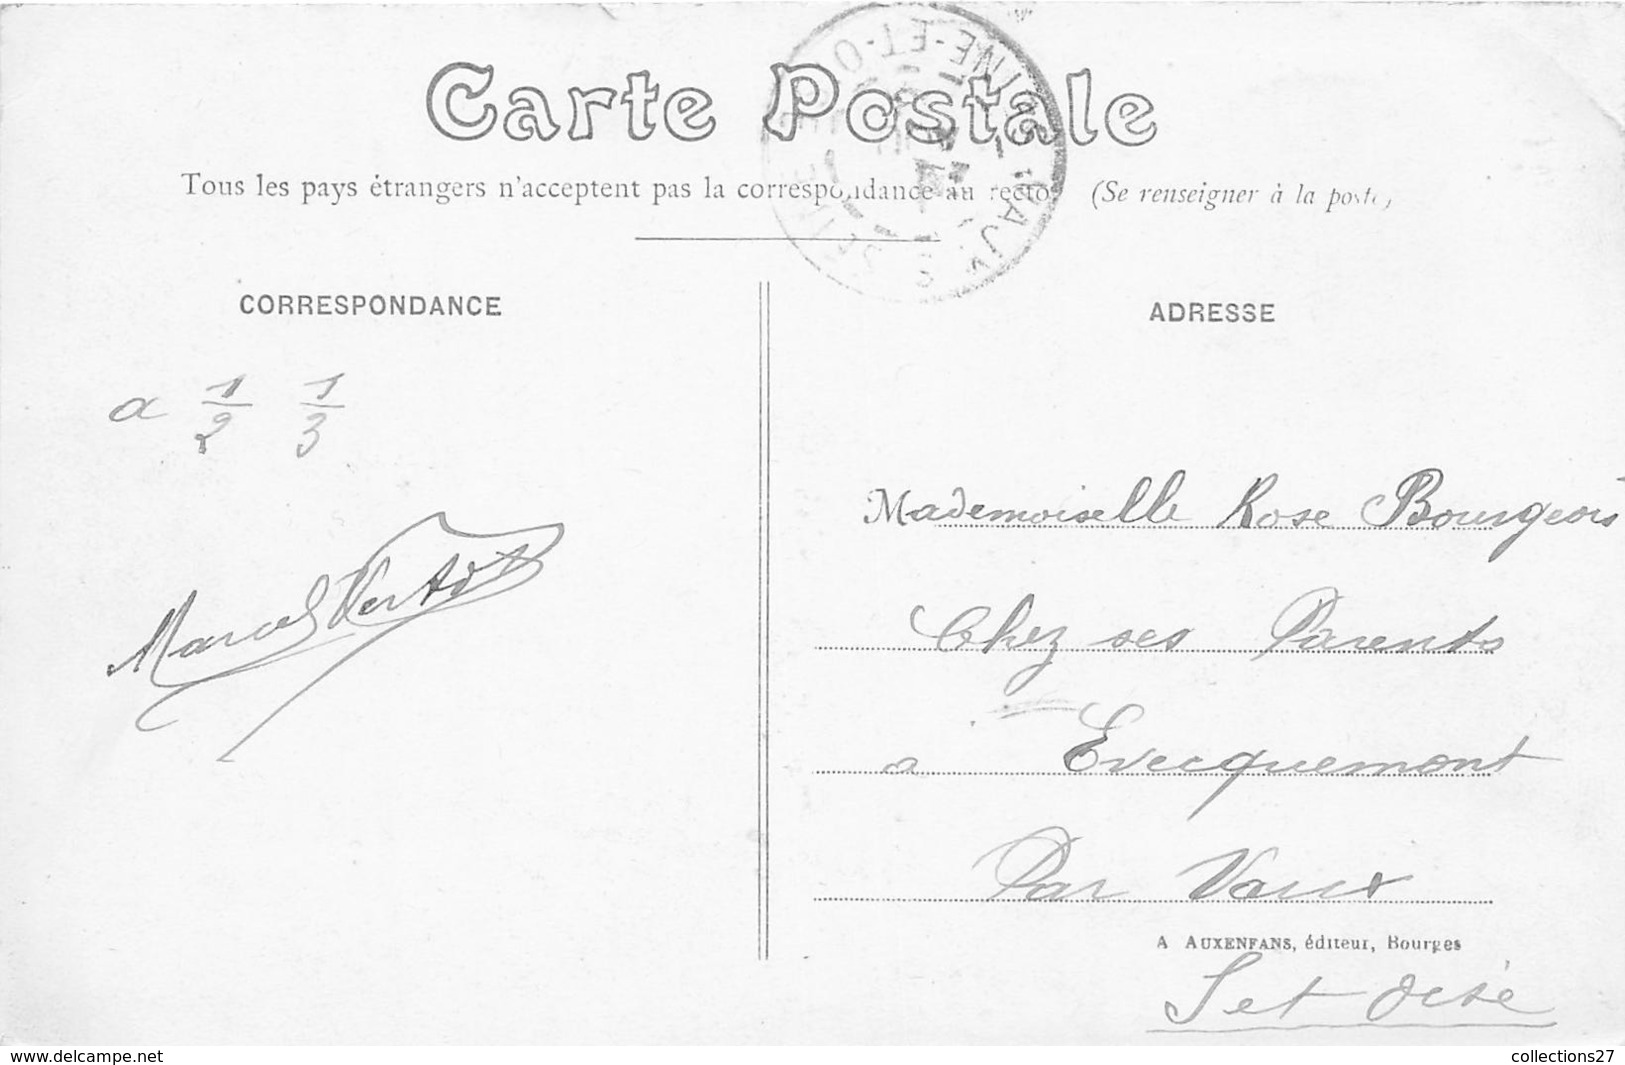 Carte Postale
Tous les pays étrangers n'acceptent pas la correspondance au recto (Se renseigner à la poste)
CORRESPONDANCE
a 1/2 1/3
Marcel
ADRESSE
Mademoiselle Rose Bourgeois
Chez ses Parents
a Evecquemont
Par Vaux
A AUXENFANS, éditeur, Bourges
S et Oise
SEINE-ET-O
www.delcampe.net
collections27